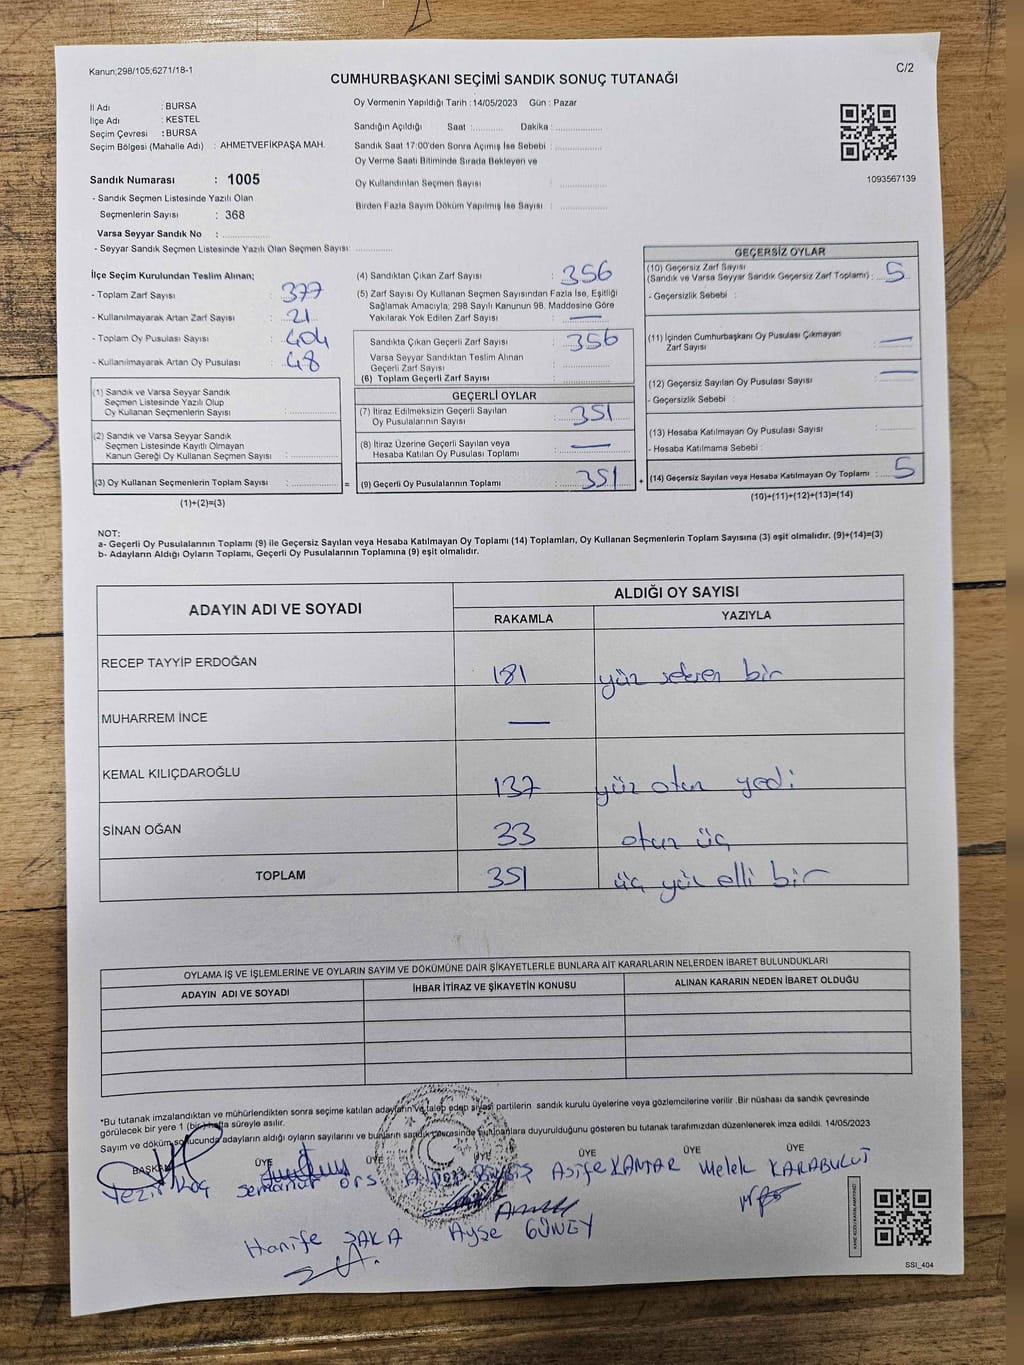 Kanun;298/105;6271/18-1
C/2
CUMHURBAŞKANI SEÇİMİ SANDIK SONUÇ TUTANAĞI
İl Adı : BURSA
İlçe Adı : KESTEL
Seçim Çevresi : BURSA
Seçim Bölgesi (Mahalle Adı) : AHMETVEFİKPAŞA MAH.
Oy Vermenin Yapıldığı Tarih : 14/05/2023 Gün : Pazar
Sandığın Açıldığı Saat :.......... Dakika :...............
Sandık Saat 17:00'den Sonra Açılmış İse Sebebi : ...............
Oy Verme Saati Bitiminde Sırada Bekleyen ve
Oy Kullandırılan Seçmen Sayısı : ...............
Birden Fazla Sayım Döküm Yapılmış İse Sayısı : ...............
1093567139
Sandık Numarası : 1005
- Sandık Seçmen Listesinde Yazılı Olan
Seçmenlerin Sayısı : 368
Varsa Seyyar Sandık No : ...............
- Seyyar Sandık Seçmen Listesinde Yazılı Olan Seçmen Sayısı: ...........
İlçe Seçim Kurulundan Teslim Alınan;
- Toplam Zarf Sayısı : 377
- Kullanılmayarak Artan Zarf Sayısı : 21
- Toplam Oy Pusulası Sayısı : 404
- Kullanılmayarak Artan Oy Pusulası : 48
(1) Sandık ve Varsa Seyyar Sandık
Seçmen Listesinde Yazılı Olup
Oy Kullanan Seçmenlerin Sayısı : ...............
(2) Sandık ve Varsa Seyyar Sandık
Seçmen Listesinde Kayıtlı Olmayan
Kanun Gereği Oy Kullanan Seçmen Sayısı : ...............
(3) Oy Kullanan Seçmenlerin Toplam Sayısı : ...............
(1)+(2)=(3)
(4) Sandıktan Çıkan Zarf Sayısı : 356
(5) Zarf Sayısı Oy Kullanan Seçmen Sayısından Fazla İse, Eşitliği
Sağlamak Amacıyla; 298 Sayılı Kanunun 98. Maddesine Göre
Yakılarak Yok Edilen Zarf Sayısı : —
Sandıkta Çıkan Geçerli Zarf Sayısı : 356
Varsa Seyyar Sandıktan Teslim Alınan
Geçerli Zarf Sayısı : ...............
(6) Toplam Geçerli Zarf Sayısı : ...............
GEÇERLİ OYLAR
(7) İtiraz Edilmeksizin Geçerli Sayılan
Oy Pusulalarının Sayısı : 351
(8) İtiraz Üzerine Geçerli Sayılan veya
Hesaba Katılan Oy Pusulası Toplamı : —
= (9) Geçerli Oy Pusulalarının Toplamı : 351
GEÇERSİZ OYLAR
(10) Geçersiz Zarf Sayısı
(Sandık ve Varsa Seyyar Sandık Geçersiz Zarf Toplamı) : 5
- Geçersizlik Sebebi :
(11) İçinden Cumhurbaşkanı Oy Pusulası Çıkmayan
Zarf Sayısı : —
(12) Geçersiz Sayılan Oy Pusulası Sayısı : —
- Geçersizlik Sebebi :
(13) Hesaba Katılmayan Oy Pusulası Sayısı : ...........
- Hesaba Katılmama Sebebi :
+ (14) Geçersiz Sayılan veya Hesaba Katılmayan Oy Toplamı : 5
(10)+(11)+(12)+(13)=(14)
NOT:
a- Geçerli Oy Pusulalarının Toplamı (9) ile Geçersiz Sayılan veya Hesaba Katılmayan Oy Toplamı (14) Toplamları, Oy Kullanan Seçmenlerin Toplam Sayısına (3) eşit olmalıdır. (9)+(14)=(3)
b- Adayların Aldığı Oyların Toplamı, Geçerli Oy Pusulalarının Toplamına (9) eşit olmalıdır.
ADAYIN ADI VE SOYADI
ALDIĞI OY SAYISI
RAKAMLA YAZIYLA
RECEP TAYYİP ERDOĞAN 181 yüz seksen bir
MUHARREM İNCE —
KEMAL KILIÇDAROĞLU 137 yüz otuz yedi
SİNAN OĞAN 33 otuz üç
TOPLAM 351 üç yüz elli bir
OYLAMA İŞ VE İŞLEMLERİNE VE OYLARIN SAYIM VE DÖKÜMÜNE DAİR ŞİKAYETLERLE BUNLARA AİT KARARLARIN NELERDEN İBARET BULUNDUKLARI
ADAYIN ADI VE SOYADI İHBAR İTİRAZ VE ŞİKAYETİN KONUSU ALINAN KARARIN NEDEN İBARET OLDUĞU
*Bu tutanak imzalandıktan ve mühürlendikten sonra seçime katılan adayların ve talep eden siyasi partilerin sandık kurulu üyelerine veya gözlemcilerine verilir .Bir nüshası da sandık çevresinde
görülecek bir yere 1 (bir) hafta süreyle asılır.
Sayım ve döküm sonucunda adayların aldığı oyların sayılarını ve bunların sandık çevresinde bulunanlara duyurulduğunu gösteren bu tutanak tarafımızdan düzenlenerek imza edildi. 14/05/2023
BAŞKAN ÜYE ÜYE ÜYE ÜYE ÜYE ÜYE
Koç Semanur örs Asife KANTAR Melek KARABULUT
Hanife SAKA Ayşe GÜNEY
SSI_404